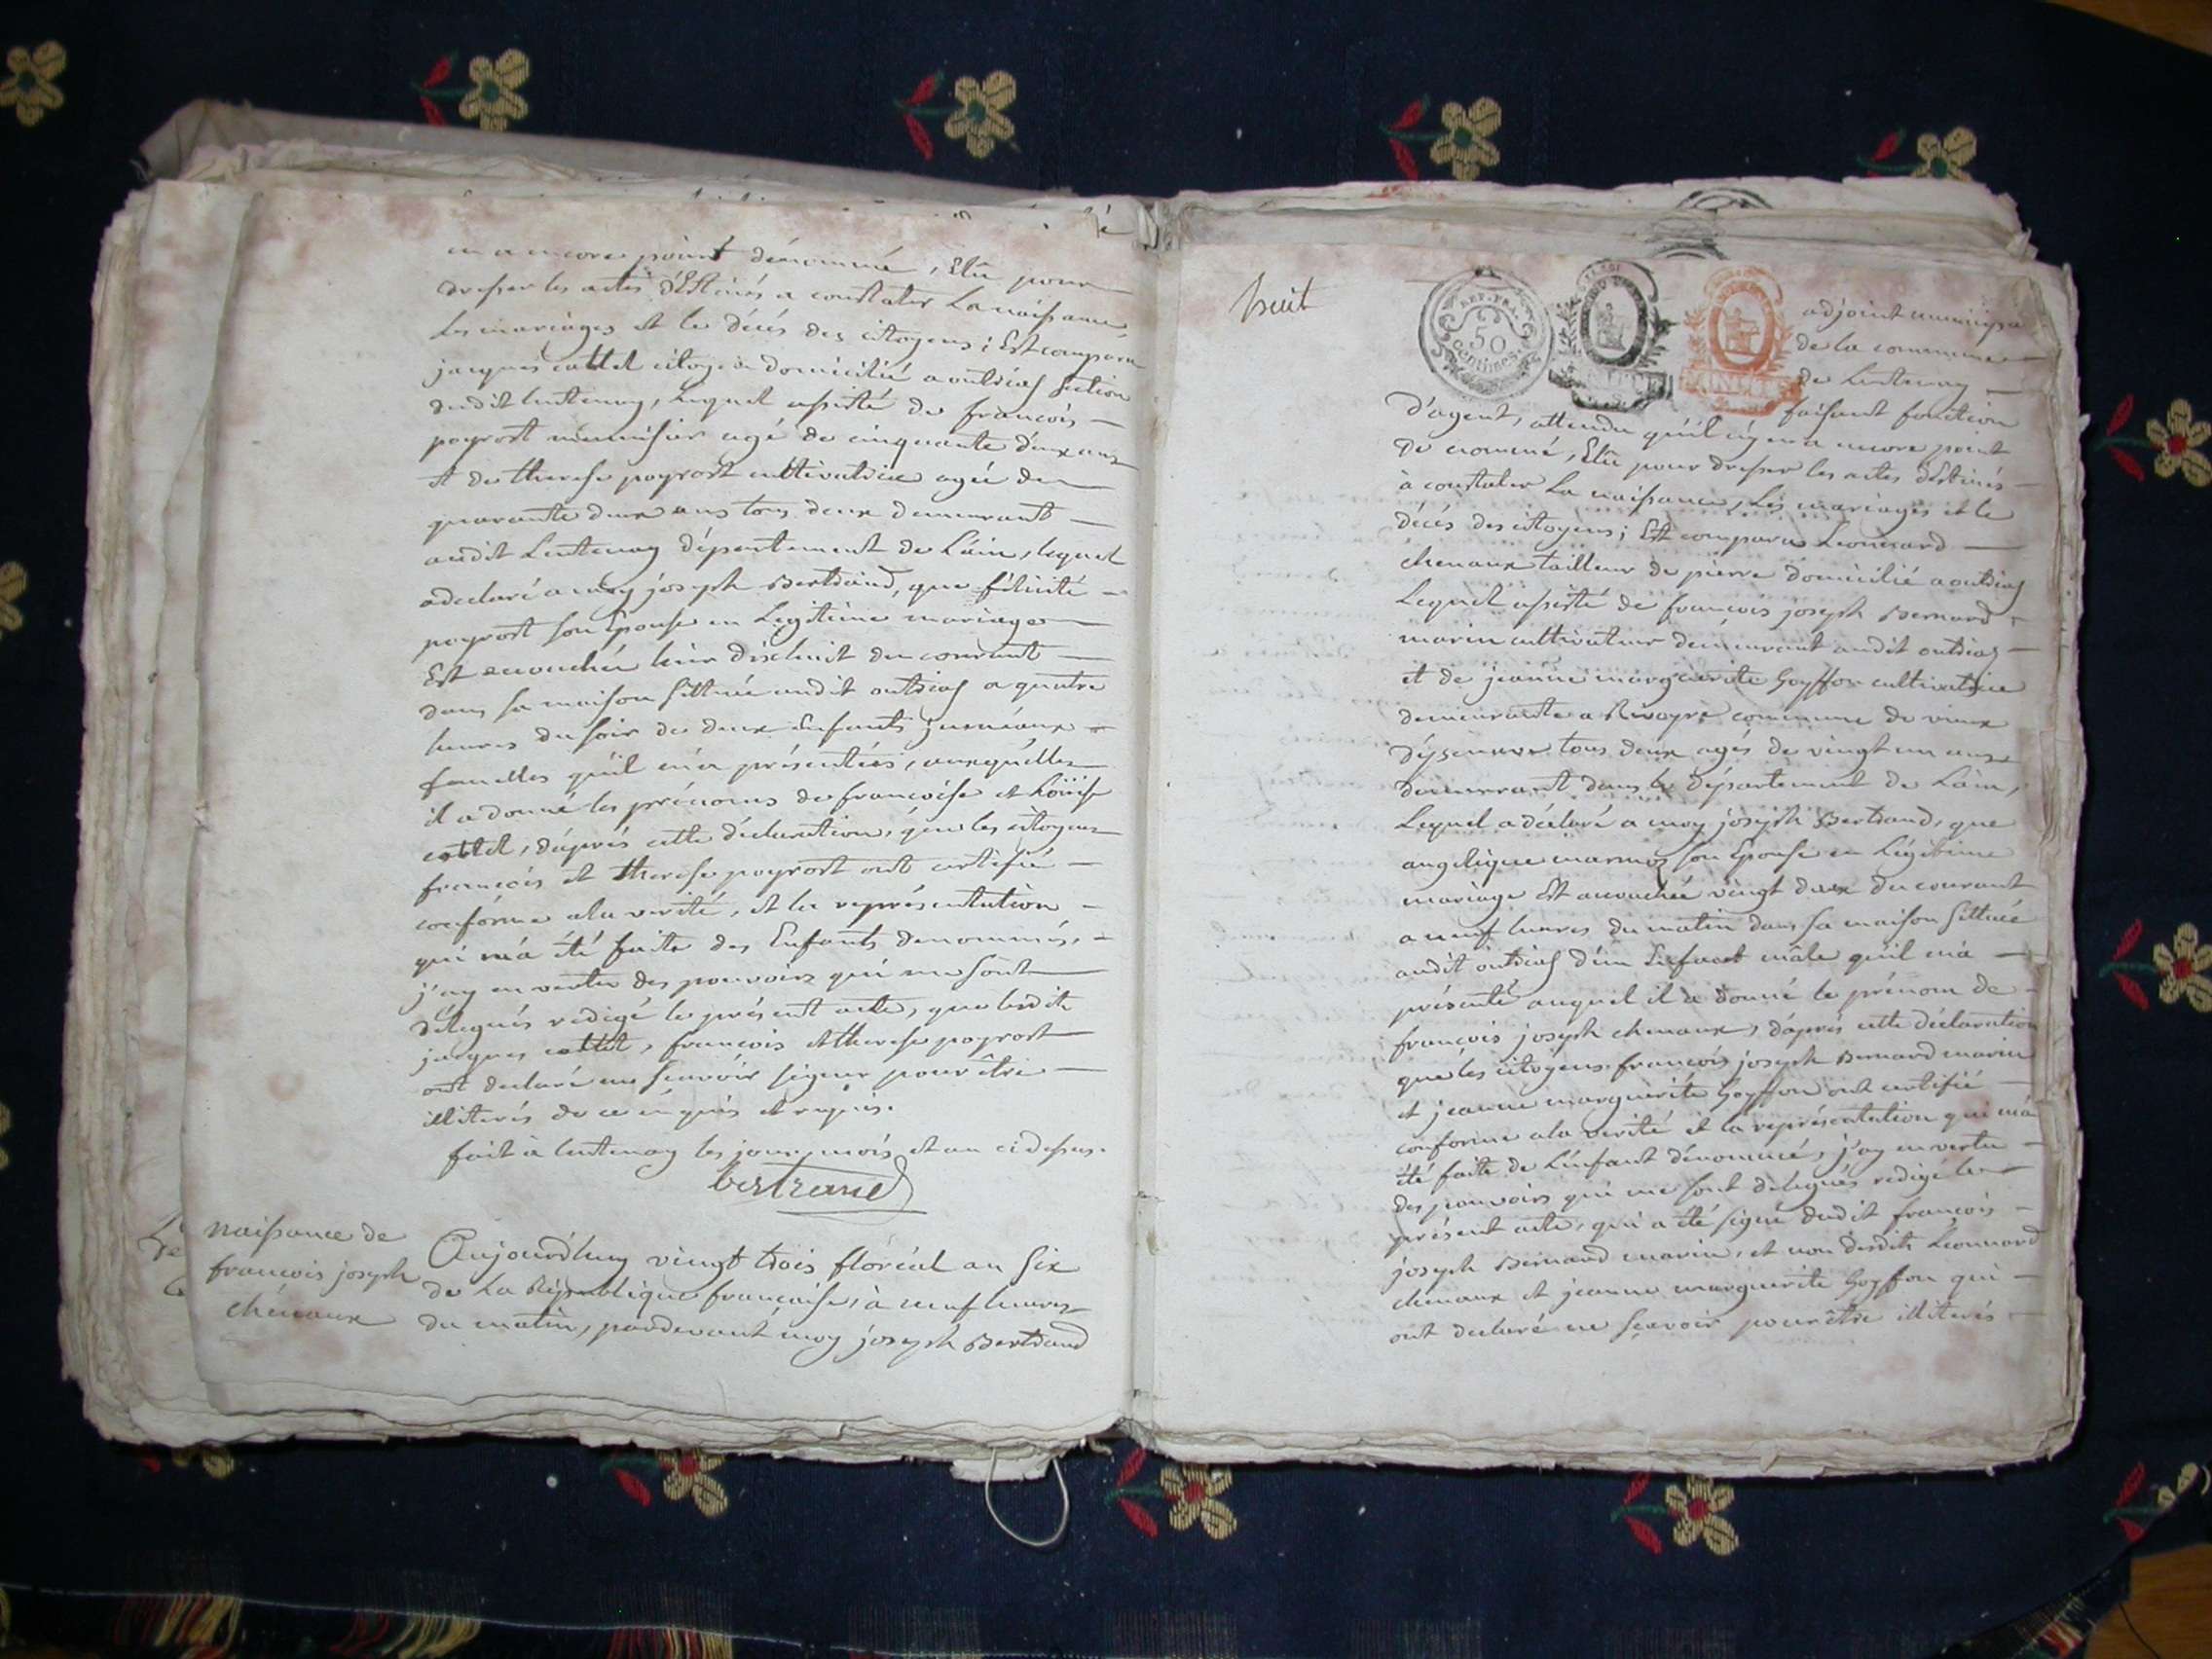 en a encore point dénommé, Elû pour
dresser les actes déstinés a constater La naissance
les mariages et le décés des citoyens; Est comparu
jacques cottet citoyen domicilié a outriaz section
dudit lentenay, lequel assisté de francois
poyrost menuisier agé de cinquante deux ans
et de therese poyrost cultivatrice agée de
quarante deux ans tous deux demeurant
audit Lentenay département de L'ain, lequel
a declaré a moy joseph Bertrand, que félicité
poyrost son Epouse en Legitime mariage
Est accouchée hier dixhuit du courant
dans sa maison sittuée audit outriaz a quatre
heures du soir de deux Enfants jumeaux
femelles qu'il m'a présentées, auxquélles
il a donné les prénoms de francoise et Loüise
cottet, d'áprés cette déclaration, que les citoyens
francois et therese poyrost ont certifié
conforme a la verité, et la représentation
qui m'a été faite des Enfants denommés,
j'ay en vertu des pouvoirs qui me sont
délegués redigé le présent acte, que lesdits
jacques cottet, francois et therese poyrost
ont declaré ne scavoir signer pour être
illiterés de ce enquis et requis.
fait à lentenay les jour, mois et an ci dessus.
bertrand
naissance de
francois joseph
chénaux
Aujourd'huy vingt trois floréal an six
de La République francaise, à neuf heures
du matin, pardevant moy joseph Bertrand
huit
REP. FRA.
50
centimes.
adjoint municipal
de la commune
de Lentenay
faisant fonction
d'agent, attendu qu'il n'y en a encore point
de nommé, Elû pour dresser les actes déstinés
à constater La naissance, Les mariages et le
décés des citoyens; Est comparu Leonnard
chenaux tailleur de pierre domicilié a outriaz
Lequel assisté de francois joseph Bernard
marin cultivateur demeurant audit outriaz
et de jeanne marguerite Goyffon cultivatrice
demeurante a Rivoyre commune de vieux
d'yzenave tous deux agés de vingt un ans
demeurant dans le département de L'ain,
Lequel a déclaré a moy joseph Bertrand, que
angelique marmoz son Epouse en Légitime
mariage Est accouchée vingt deux du courant
a neuf heures du matin dans sa maison sittuée
audit outriaz d'un Enfant mâle qu'il m'a
présenté auquel il a donné le prénom de
francois joseph chenaux, d'aprés cette déclaration
que les citoyens francois joseph Bernard marin
et jeanne marguerite Goyffon ont certifié
conforme a la verité et la représentation qui m'a
été faite de L'enfant dénommé, j'ay en vertu
des pouvoirs qui me sont délegués redigé le
présent acte, qui a été signé dudit francois
joseph Bernard marin, et non desdits Léonnard
chenaux et jeanne marguerite Goyffon qui
ont declaré ne scavoir pour être illiterés